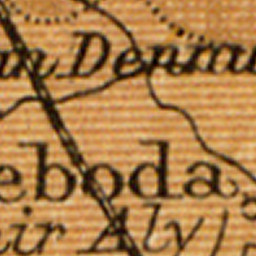 n Denmu
eboda
ir Aly